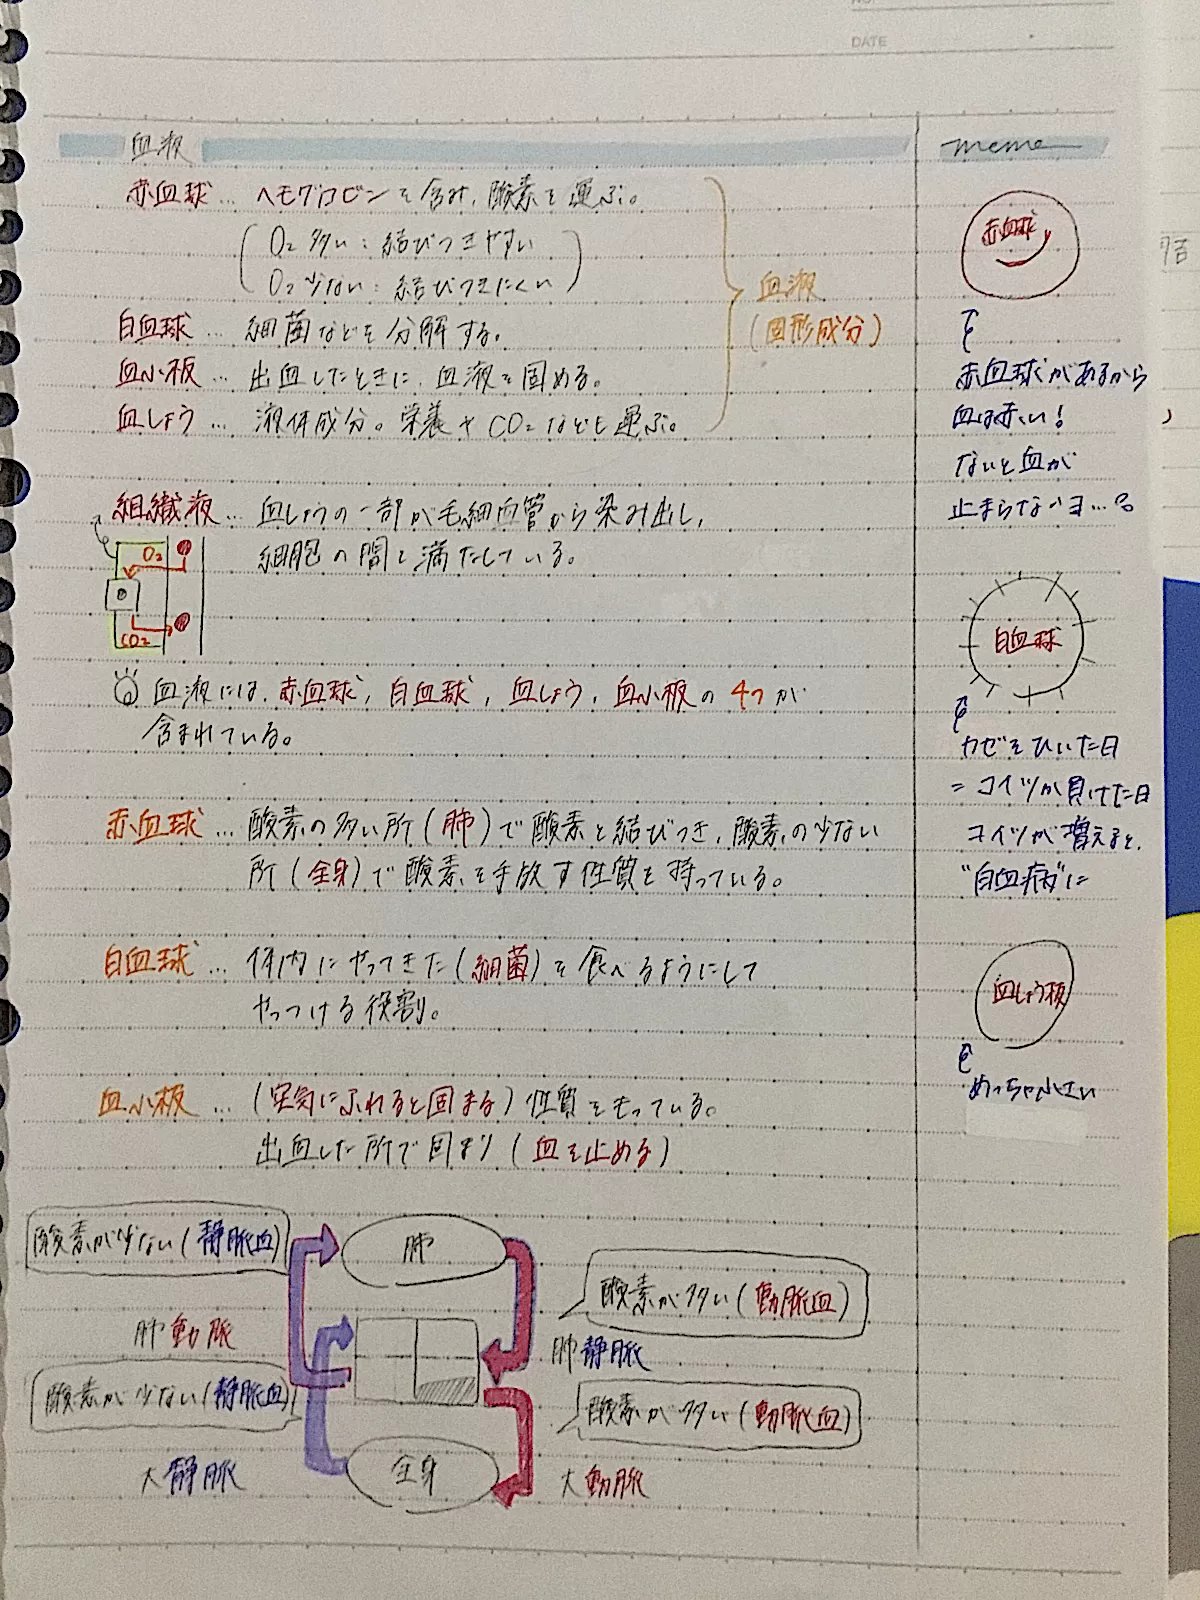 DATE
血液
赤血球… ヘモグロビンを含み、酸素を運ぶ。
O₂多い：結びつきやすい
O₂少ない：結びつきにくい
白血球… 細菌などを分解する。
血小板… 出血したときに、血液を固める。
血しょう… 液体成分。栄養やCO₂などを運ぶ。
血液
(固形成分)
組織液… 血しょうの一部が毛細血管から染み出し、
細胞の間を満たしている。
O₂
CO₂
血液には、赤血球, 白血球, 血しょう, 血小板の4つが
含まれている。
赤血球… 酸素の多い所(肺)で酸素と結びつき、酸素の少ない
所(全身)で酸素を手放す性質を持っている。
白血球… 体内にやってきた(細菌)を食べるようにして
やっつける役割。
血小板… (空気にふれると固まる)性質をもっている。
出血した所で固まり(血を止める)
酸素が少ない(静脈血)
肺
酸素が多い(動脈血)
肺動脈
肺静脈
酸素が少ない(静脈血)
酸素が多い(動脈血)
大静脈
全身
大動脈
meme
赤血球
赤血球があるから
血は赤い!
ないと血が
止まらないヨ…
白血球
カゼをひいた日
=コイツが負けた日
コイツが増えると、
"白血病"に
血しょう板
めっちゃ小さい